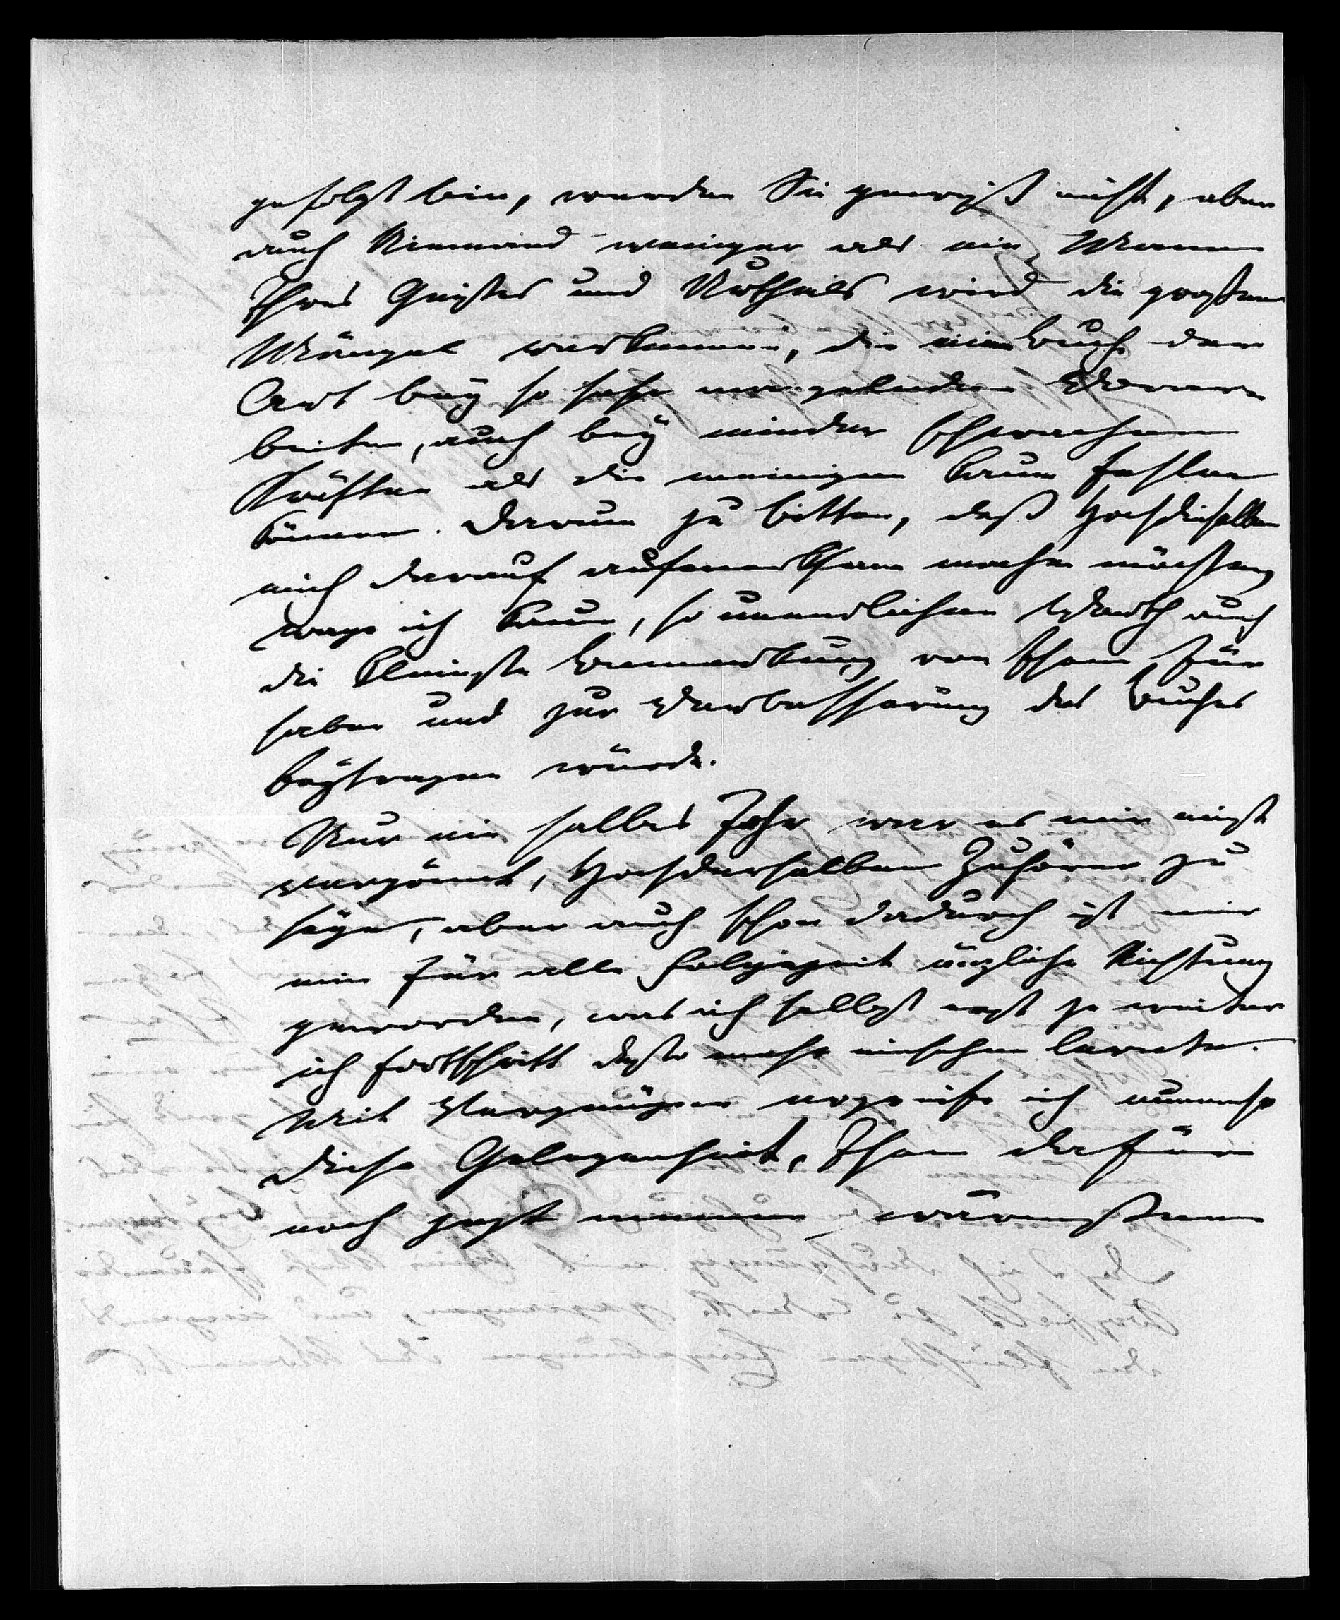 gefolgt bin, werden Sie gewiß nicht, aber
auch Niemand weniger als ein Mann
Ihres Geistes und Urtheils wird die großen
Mängel verkennen, die ein Buch der
Art bey so sehr mangelnden Vorar-
beiten, auch bey minder schwachen
Kräften als die meinigen kaum fehlen
können. Darum zu bitten, daß Hochdieselben
mich darauf aufmerksam machen möchten,
wage ich kaum, so unendlichen Werth auch
die kleinste Bemerkung von Ihnen für
haben und zur Verbesserung des Buches
beytragen würde.
Nur ein halbes Jahr war es mir nicht
vergönnt, Hochderselben Zuhörer zu
seyn, aber auch schon dadurch ist mir
eine für alle Folgezeit nüzliche Richtung
geworden, was ich selbst erst je weiter
ich fortschritt desto mehr einsehen lernte.
Mit Vergnügen ergreife ich nunmehr
diese Gelegenheit, Ihnen dafür
noch jezt meinen wärmsten